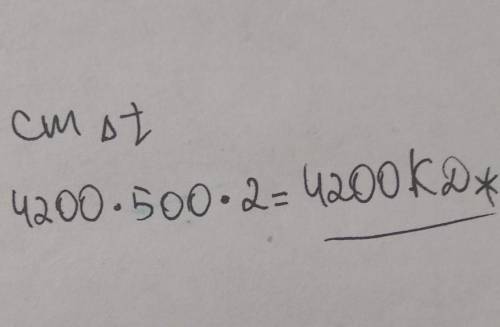 cm Δt
4200·500·2= 4200КДж